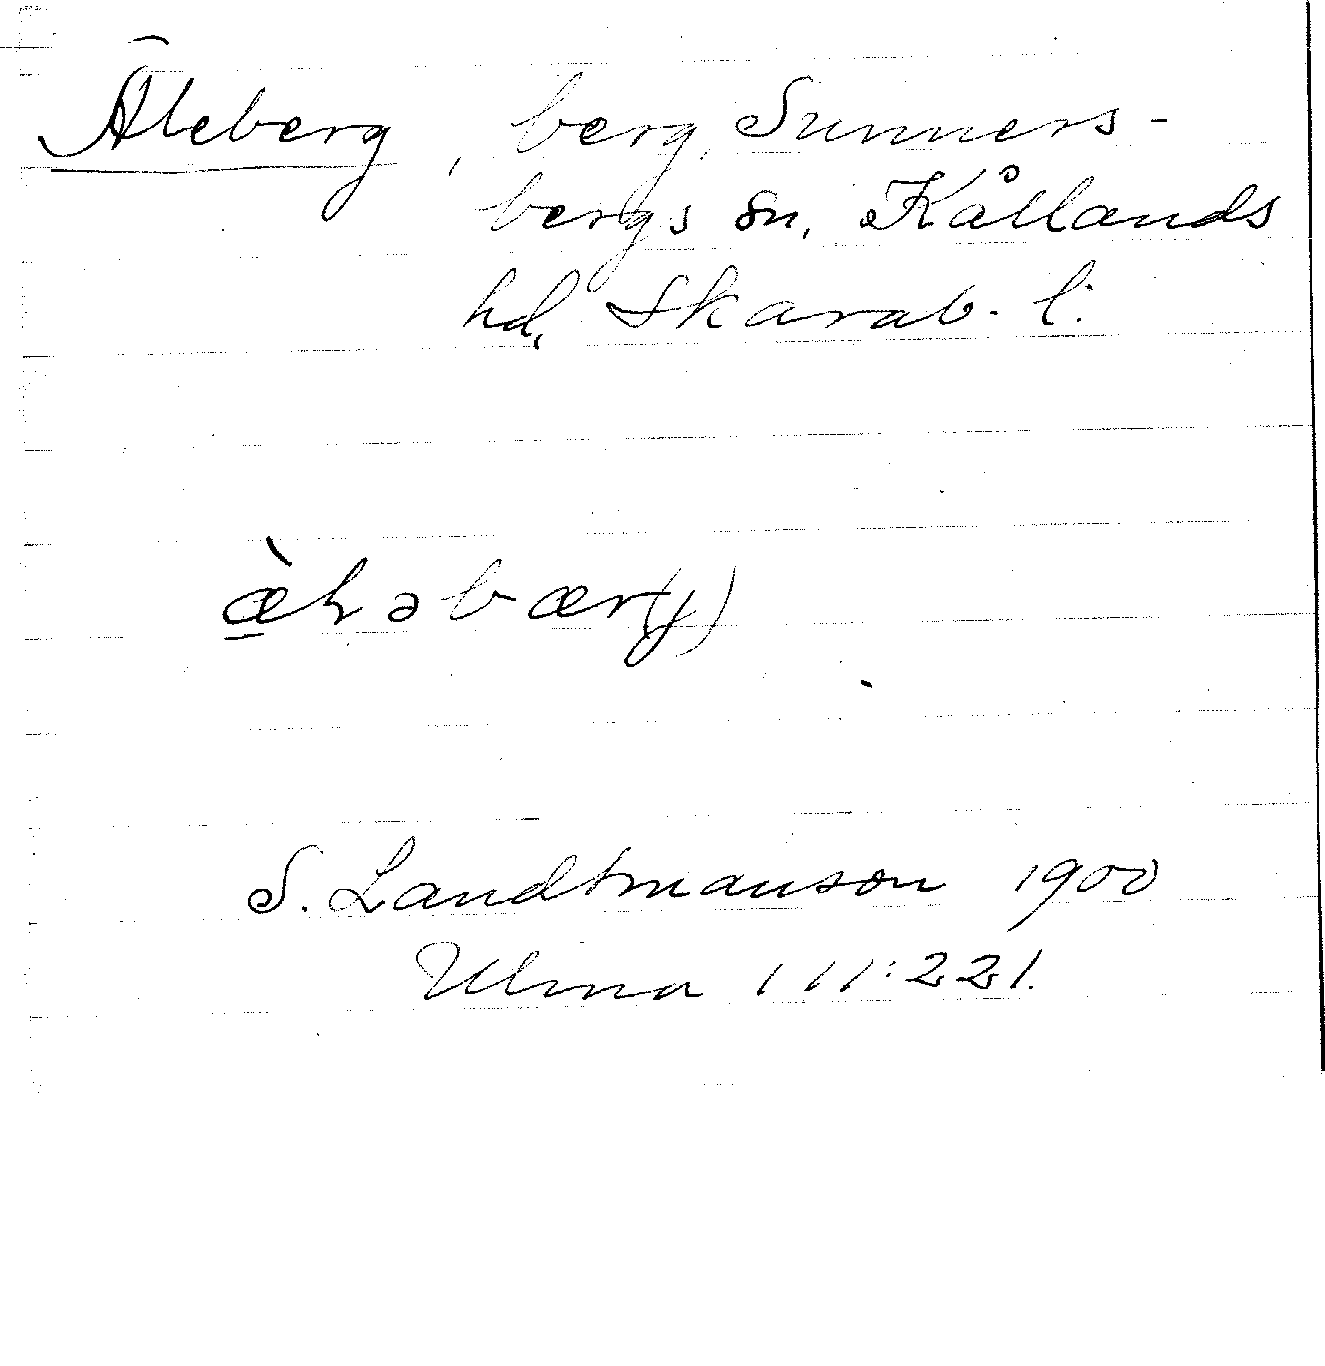 Äleberg, berg, Sunners-
bergs sn, Kållands
hd, Skarab. l:
æ̱̀ɫəbær(y)
S. Landtmanson 1900
Ulma 111:221.